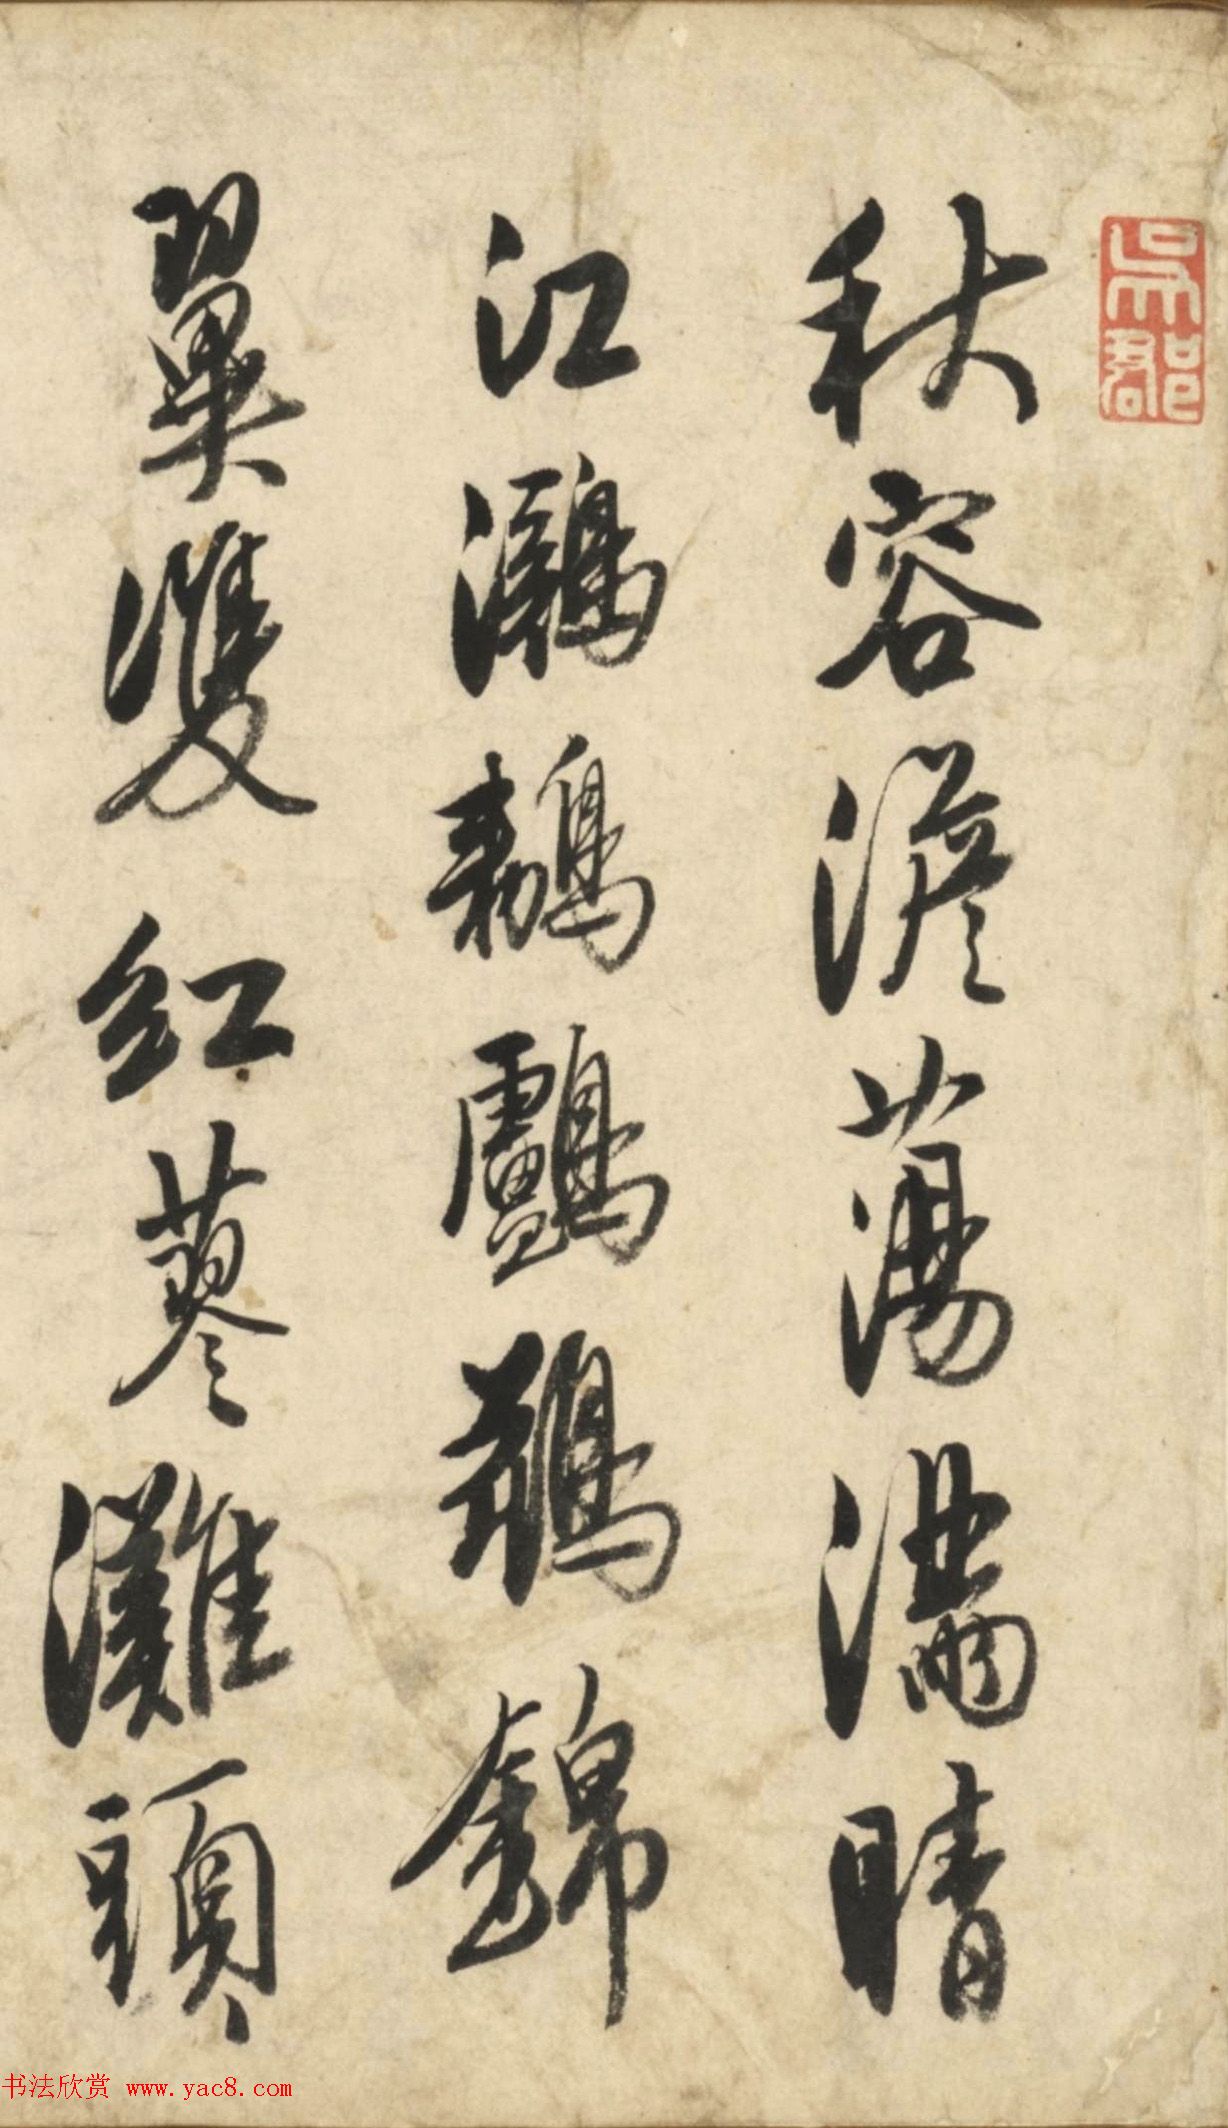 吳郡
秋容澹蕩滿晴
江鸂鶒鸕鶿錦
翼雙紅蓼灘頭
书法欣赏 www.yac8.com